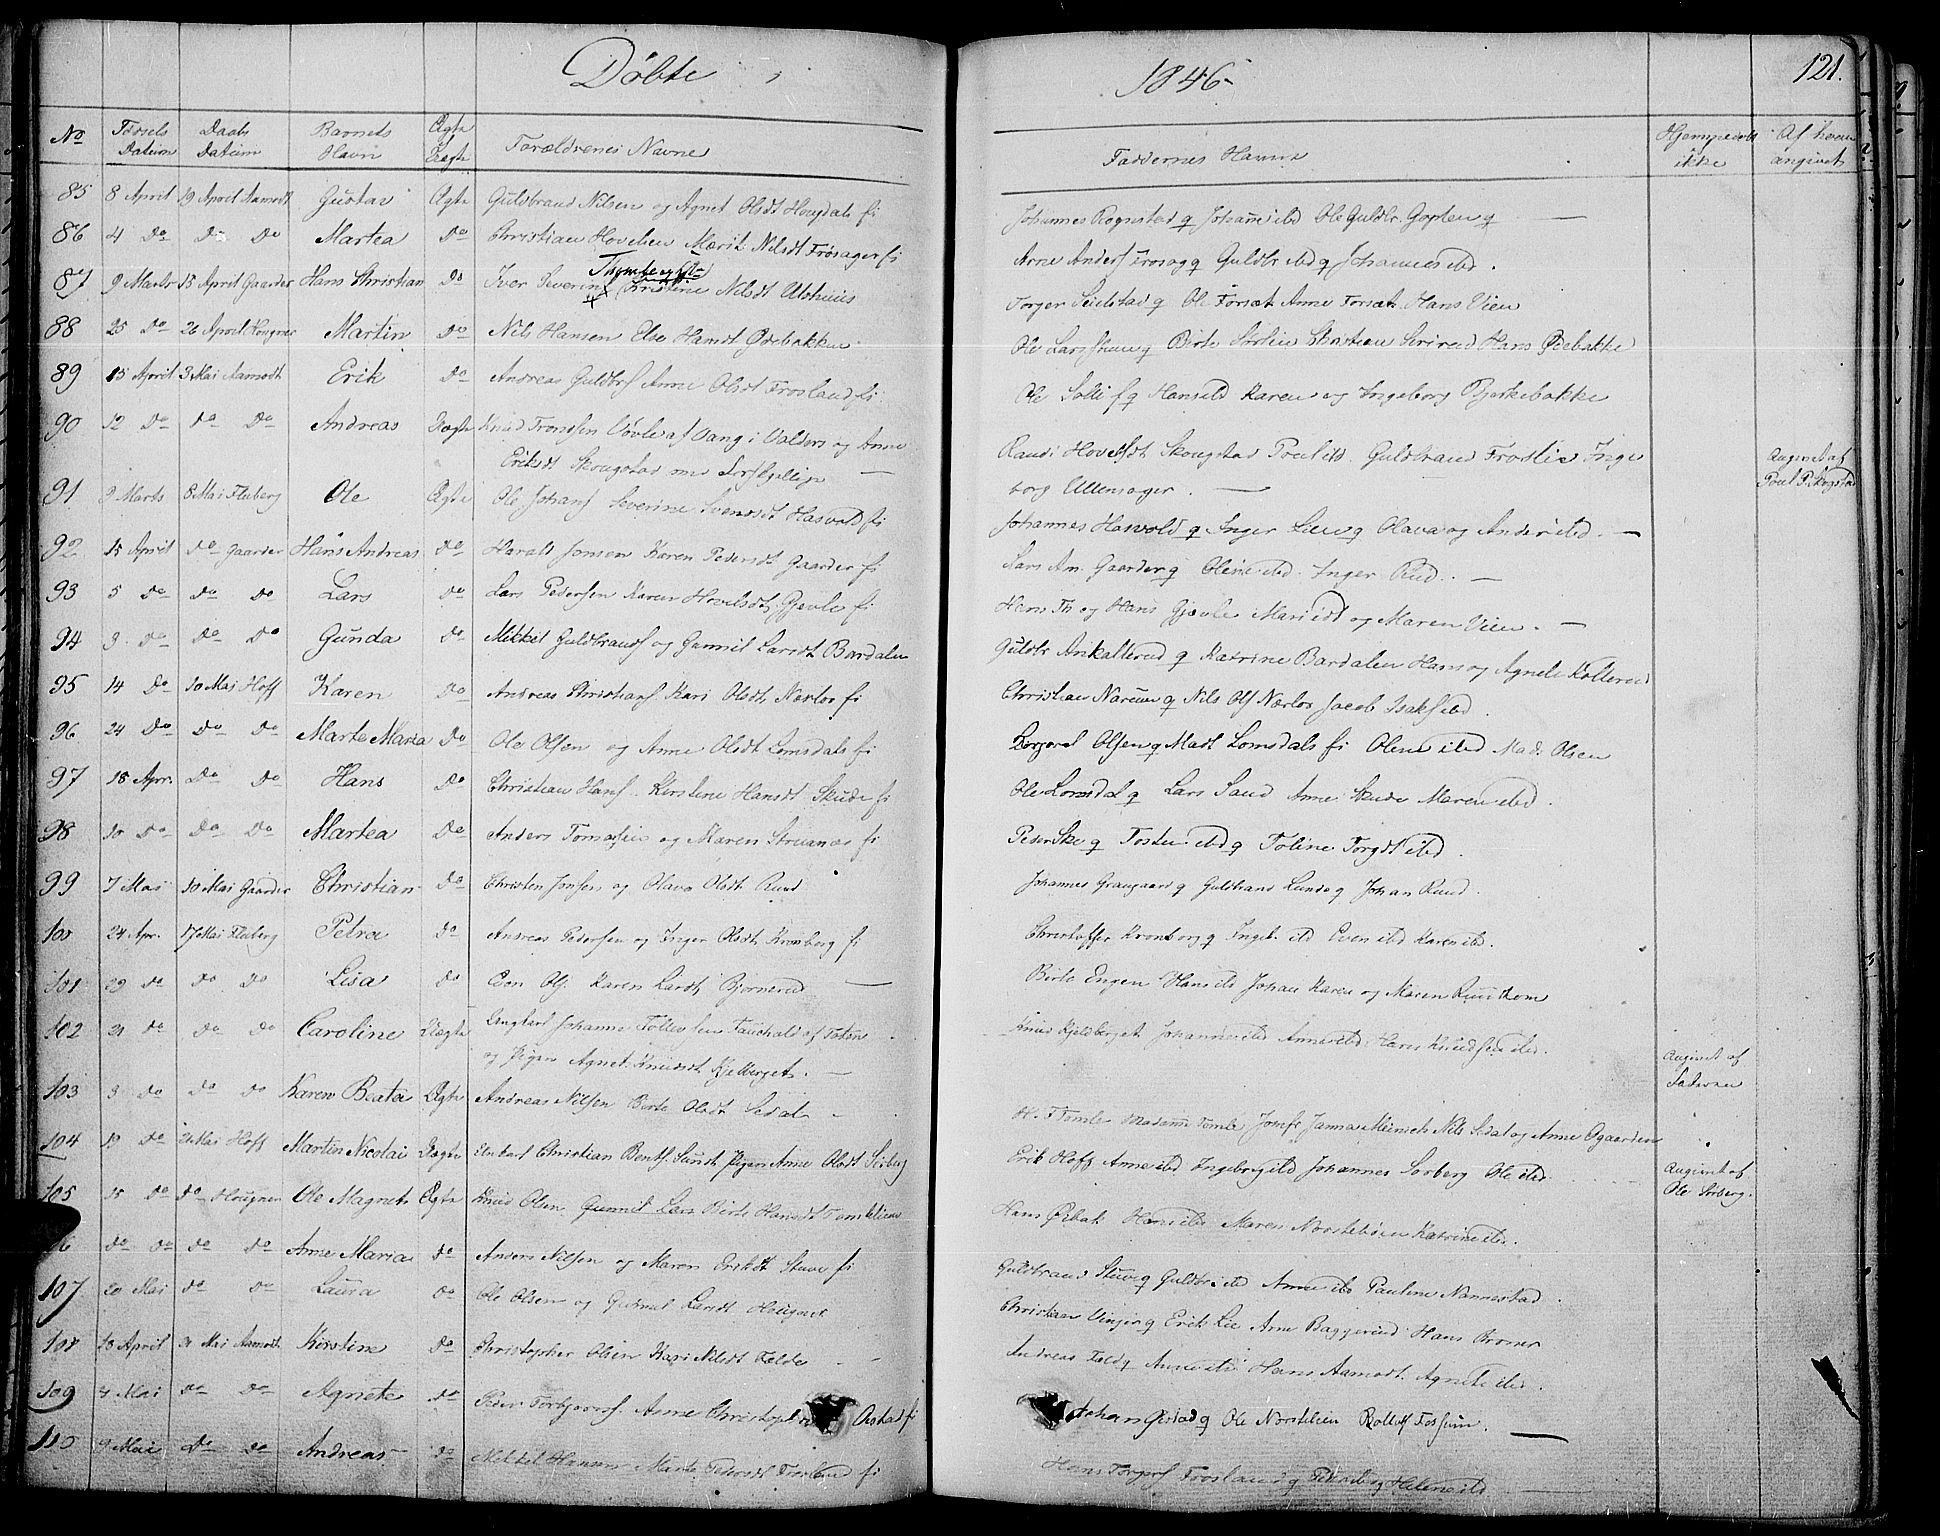 Døbte 1846 121.
No Fødsels Datum Daabs Datum Barnets Navn Ægte Uægte Forældrenes Navne Faddernes Navne Hjemmedøbt ikke Af hvem angivet
85 8 April 19 April Aamodt Gustav Ægte Guldbrand Nilsen og Agnet Olsdt Hougdals fi Johannes Rognstad g Johanne ibd Ole Guldbr. Goplen g
86 4 Do Do Do Martea Do Christian Hovelsen Marit Nilsdt Frøsager fi Arne Anders Frosag g Guldbr ibd g Johannes ibd.
87 9 Marts 13 April Gaarder Hans Christian Do Iver Severin Christine Nilsdt Alshuus Torger Seielstad g Ol. Forsæt Anne Forsæt Hans Vien
88 25 Do 26 April Hougner Martin Do Nils Hansen Else Hansdt Ødebakken Ole Lars g Birte Christian Hans Ødebakke
89 15 April 3 Mai Aamodt Erik Do Andreas Guldbrs Anne Olsdt Froslandsfi Ole Solli f g Hans ibd Karen og Ingeborg Bjerkebakke
90 12 Do Do Do Andreas Uægte Knud TronsenØvle af Vang i Valders og Anne Randi Hovelsdt Skougstad Poul ibd Guldbrand Froslie Inge Angivet af
Eriksdt Skougstad borg Ullensager. Poul P. Skogstad
91 9 Marts 8 Mai Fluberg Ole Ægte Ole Johans Severine Svensdt Hasvolds fi Johannes Hasvold g Inger Lien g Olava og Anders ibd.
92 15 April Do Gaarder Hans Andreas Do Harald Jonsen Karen Pedersdt Gaarder fi Lars Am. Gaarder g Oline ibd. Inger Rud.
93 5 Do Do Do Lars Do Lars Pedersen Karen Hovelsdt Gjøvle fi Hans Th og Hans Gjøvle Mari ibd og Maren Vien.
94 3 Do Do Do Gunda Do Mikkel Guldbrands og Gunnil Larsdt Bardalen Guldbr Ankallerud g Katrine Bardalen Hans og Agnete Kollerud
95 14 Do 10 Mai Hoff Karen Do Andreas Christians Kari Olsdt Nærlos fi Christian Narum g Nils Ols Nærlos Jacob Isaks ibd.
96 24 Do Do Do Marte Maria Do Ole Olsen og Anne Olsdt Lomsdals fi Olsen g Madt Lomsdals fi Oline ibd Mad: Olsen
97 18 Apr. Do Do Hans Do Christian Hans Kirstine Hansdt Skude fi Ole Lomsdal g Lars Sand Anne Skude Maren ibd.
98 10 Do Do Do Martea Do Anders og Maren fi Peder Ske g ibd g Foline ibd.
99 7 Mai 10 Mai Gaarder Christian Do Christen Jonsen og Olava Olsdt Ruud Johannes Graugaard g Guldbrand Lunde g Johan Ruud.
100 24 Apr. 17 Mai Fluberg Petra Do Andreas Pedersen og Inger Olsdt Kronberg fi Christoffer Kronborg g Ingeb. ibd Even ibd Karen ibd.
101 29 Do Do Do Lisa Do Even Ols. Karen Larsdt Bjørnerud Birte Engen Hans ibd Johan Karen og Maren
102 21 Do Do Do Caroline Uægte Ungkarl Johannes af Toten Knud Kjelsberget Johanne ibd Anne ibd Hans Knudsen ibd. Angivet af
og Pigen Agnet. Knudsdt Kjelberget. Faderen
103 3 Do Do Do Karen Beata Ægte Andreas Nilsen Birte Olsdt Sedal H. Tomle Madame Tomle Jomfr Janna Meinich Nils Sedal og Anne Ogaarden
104 19 Do 21 Mai Hoff Martin Nicolai Uægte Unkarl Christian Bents. Sund Pigen Anne Olsdt Sorberg Erik Hoff Anne ibd Ingebrigt ibd Johannes Sorberg Ole ibd. Angivet af
Ole Sorberg.
105 15 Do Do Hougner Ole Magnus Ægte Knud Olsen Gunnil Lars Birte Hansdt Tomlelien Hans Ødbak Hans ibd Maren Norstebøen Katrine ibd.
106 Do Do Do Do Anne Maria Do Anders Nilsen og Maren Eriksdt Stuve fi Guldbrand Stuve g Guldbr ibd Anne ibd Pauline Nannestad.
107 20 Mai Do Do Laura Do Ole Olsen og Gunnil Larsdt Hougner Christian Vinjer g Erik Lie Anne Baggerud Hans Broner
108 18 April 21 Mai Aamodt Kirstine Do Christopher Olsen Kari Nilsdt Falde Andreas Fald g Anne ibd Hans Aamodt. Agnete ibd.
109 4 Mai Do Do Agnete Do Peder Torbjørns Anne Christoph Øistad fi Johan Øistad g Ole Norstelien Rolluf Fossum.
110 9 Mai Do Do Andreas Do Mikkel Hansen Marte Pedersdt Frosland fi Hans Torgers Frosland g Peder ibd g Helene ibd